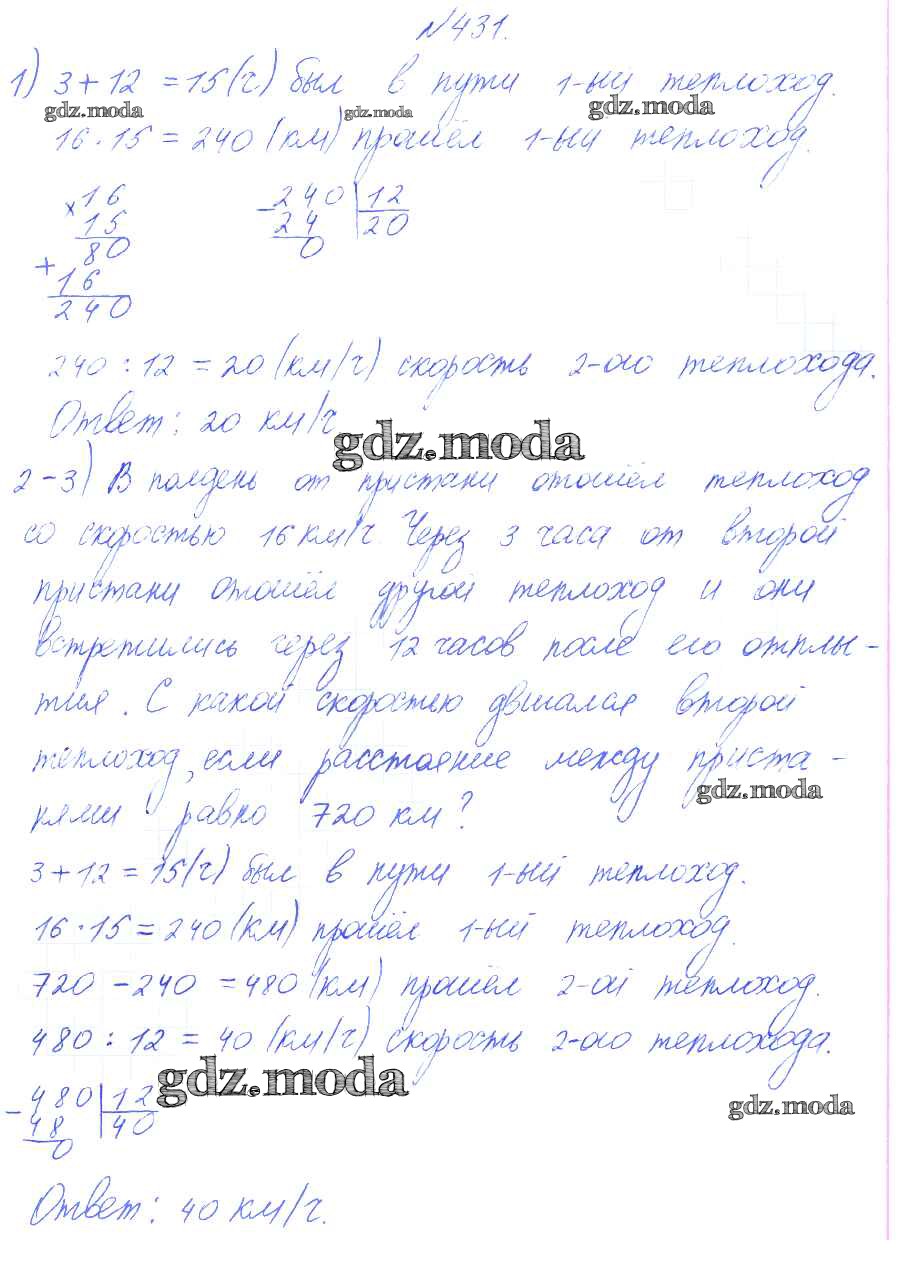 №431.
1) 3+12 =15(ч) был в пути 1-ый теплоход.
gdz.moda gdz.moda gdz.moda
16·15=240(км) прошёл 1-ый теплоход.
×16 -240 12
15 24 20
80 0
+
16
240
240:12=20(км/ч) скорость 2-ого теплохода.
Ответ: 20 км/ч
gdz.moda
2-3) В полдень от пристани отошёл теплоход
со скоростью 16 км/ч. Через 3 часа от второй
пристани отошёл другой теплоход и они
встретились через 12 часов после его отплы-
тия. С какой скоростью двигался второй
теплоход, если расстояние между приста-
gdz.moda
нями равно 720 км?
3+12=15(ч) был в пути 1-ый теплоход.
16·15=240(км) прошёл 1-ый теплоход.
720-240=480(км) прошёл 2-ой теплоход.
480:12=40(км/ч) скорость 2-ого теплохода.
gdz.moda
-480 12
48 40
0
gdz.moda
Ответ: 40 км/ч.